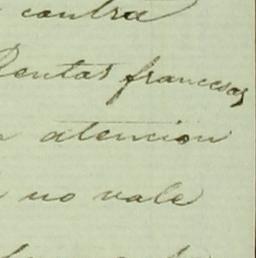 contra
Rentas francesas
atencion
no vale